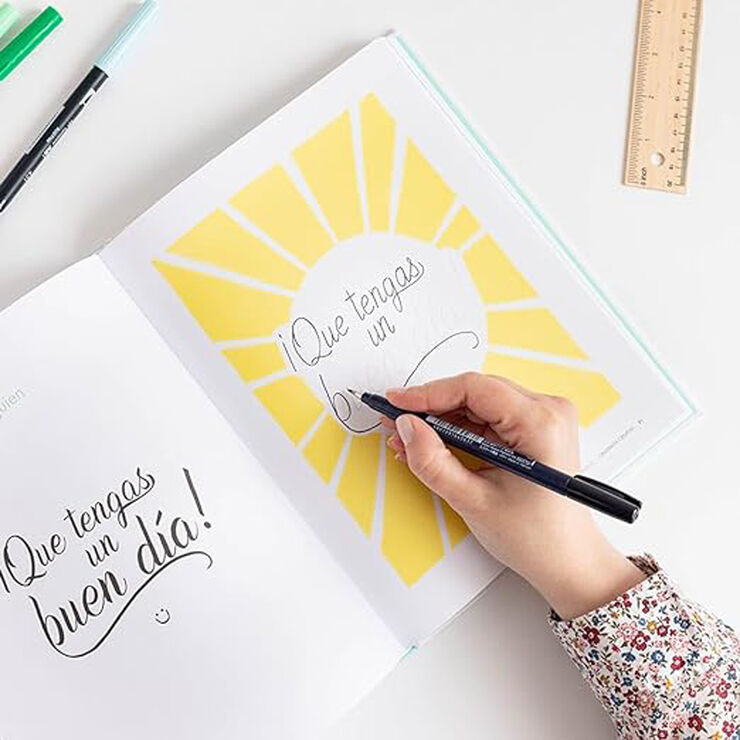 ¡Que tengas
un
buen día!
¡Que tengas
un
bu